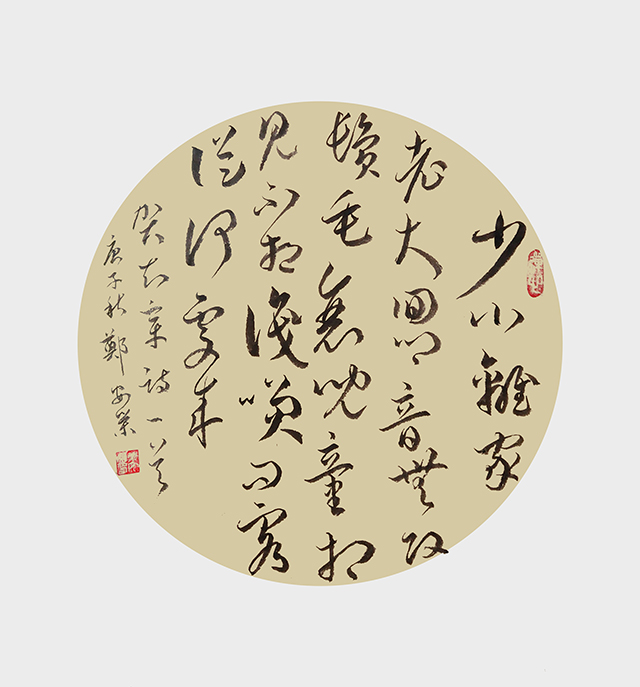 少小離家
老大回鄉音無改
鬢毛衰兒童相
見不相識笑問客
從何處來
賀知章詩一首
庚子秋鄭